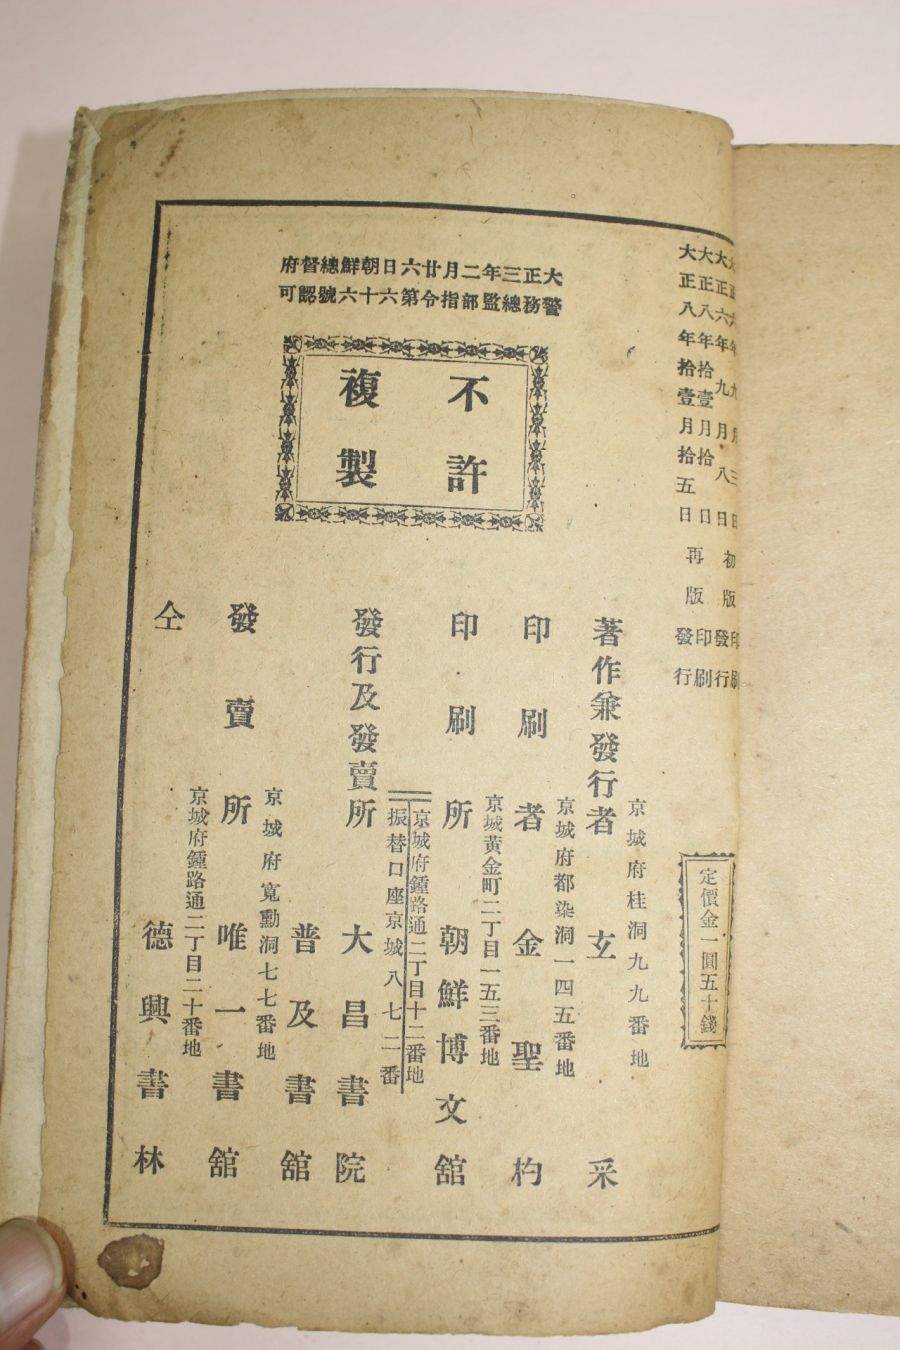 大正六年九月三日初版印刷
大正六年九月八日初版發行
大正八年拾壹月拾日再版印刷
大正八年拾壹月拾五日再版發行
定價金一圓五十錢
大正三年二月廿六日朝鮮總督府
警務總監部指令第六十六號認可
不許
複製
京城府桂洞九九番地
著作兼發行者 玄 采
京城府都染洞一四五番地
印刷者 金聖杓
京城黃金町二丁目一五三番地
印刷所 朝鮮博文舘
京城府鍾路通二丁目十二番地
振替口座京城八七二番
發行及發賣所 大昌書院
普及書舘
京城府寬勳洞七七番地
發賣所 唯一書舘
京城府鍾路通二丁目二十番地
仝 德興書林